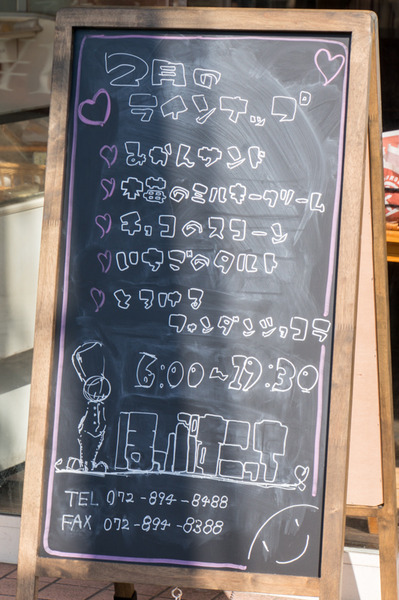 2月の
ラインナップ
みかんサンド
木苺のミルキークリーム
チョコのスコーン
いちごのタルト
とろける
フォンダンショコラ
6:00~19:30
TEL 072-894-8488
FAX 072-894-8388